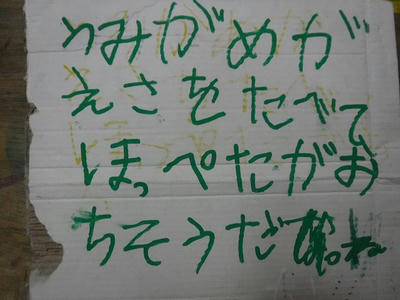 うみがめが
えさをたべて
ほっぺたがお
ちそうだね